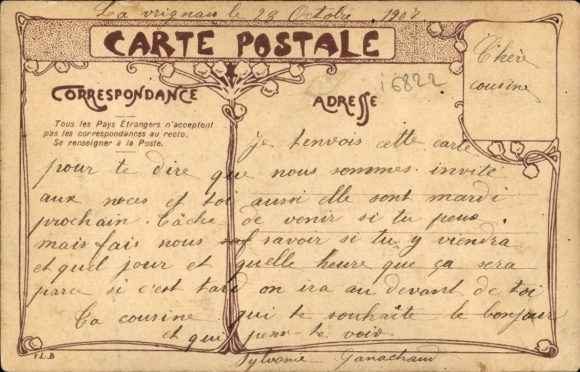 La vrignais le 28 Octobre 1907
CARTE POSTALE
CORRESPONDANCE
ADRESSE
Tous les Pays Étrangers n'acceptent
pas les correspondances au recto.
Se renseigner à la Poste.
16822
Cher
cousine
je t'envois cette carte
pour te dire que nous sommes invité
aux noces et toi aussi elle sont mardi
prochain. Tâche de venir si tu peux
mais fais nous savoir si tu y viendra
et quel jour et quelle heure que ça sera
parce si c'est tard on ira au devant de toi
Ta cousine qui te souhaite le bonjour
et qui pense te voir
Sylvanie Ganachaud
F.L.B